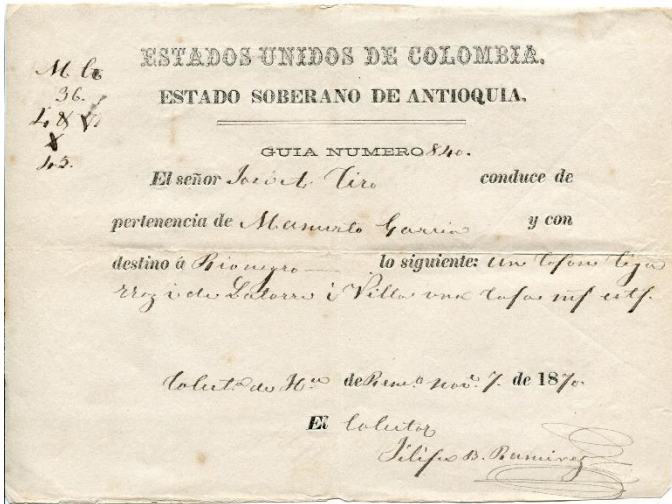 ESTADOS UNIDOS DE COLOMBIA.
ESTADO SOBERANO DE ANTIOQUIA.
M. G.
36.
45.
GUIA NUMERO 840.
El señor José A. Tiro conduce de
pertenencia de Mamerto Garcia y con
destino á Rionegro lo siguiente: un
i de Latorre i Villa una
de Ha de Rem. Nov. 7. de 1870.
El Colector
Filipe B. Ramirez